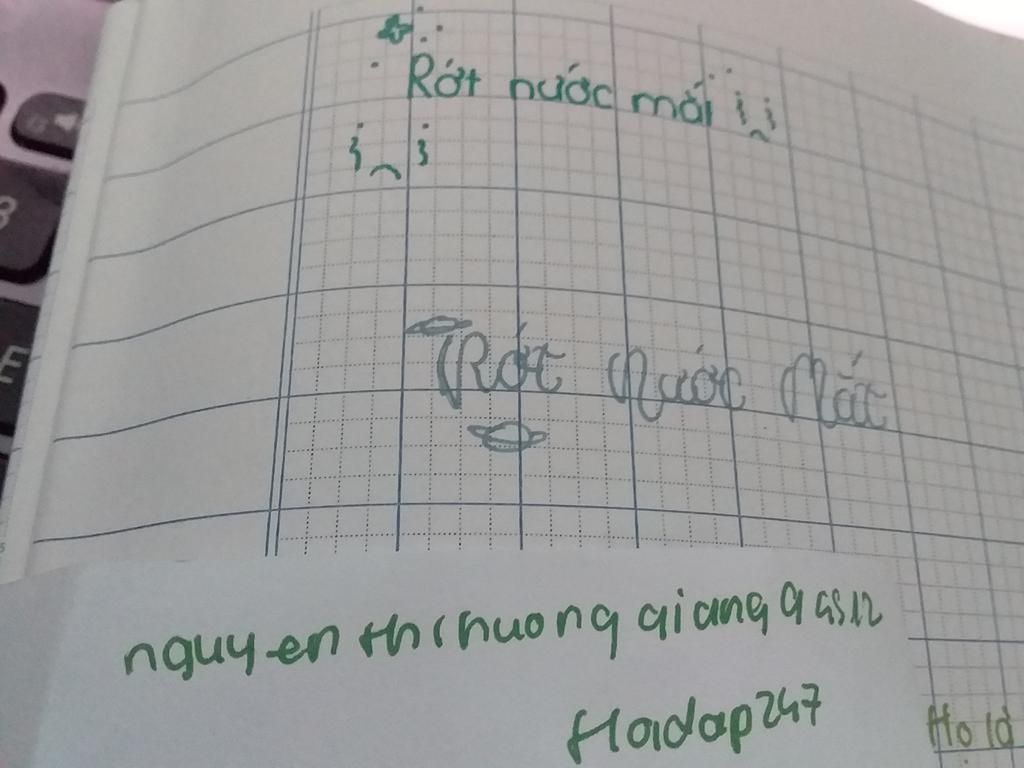 Rớt nước mắt
Rớt Nước Mắt
nguyenthihuonggiang9a512
Hoidap247